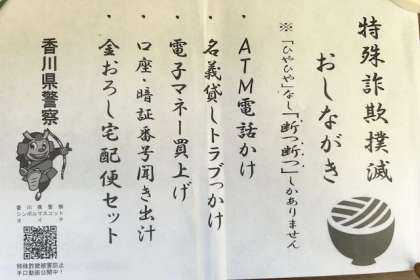 特殊詐欺撲滅
おしながき
※「ひやひや」なし「断つ断つ」しかありません
・ATM電話かけ
・名義貸しトラブっかけ
・電子マネー買上げ
・口座・暗証番号聞き出汁
・金おろし宅配便セット
香川県警察
香川県警察
シンボルマスコット
特殊詐欺被害防止
手口動画公開中!